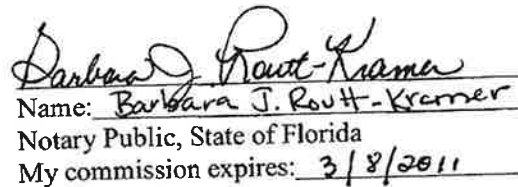 Barbara J. Routt-Kramer
Name: Barbara J. Routt-Kramer
Notary Public, State of Florida
My commission expires: 3/8/2011